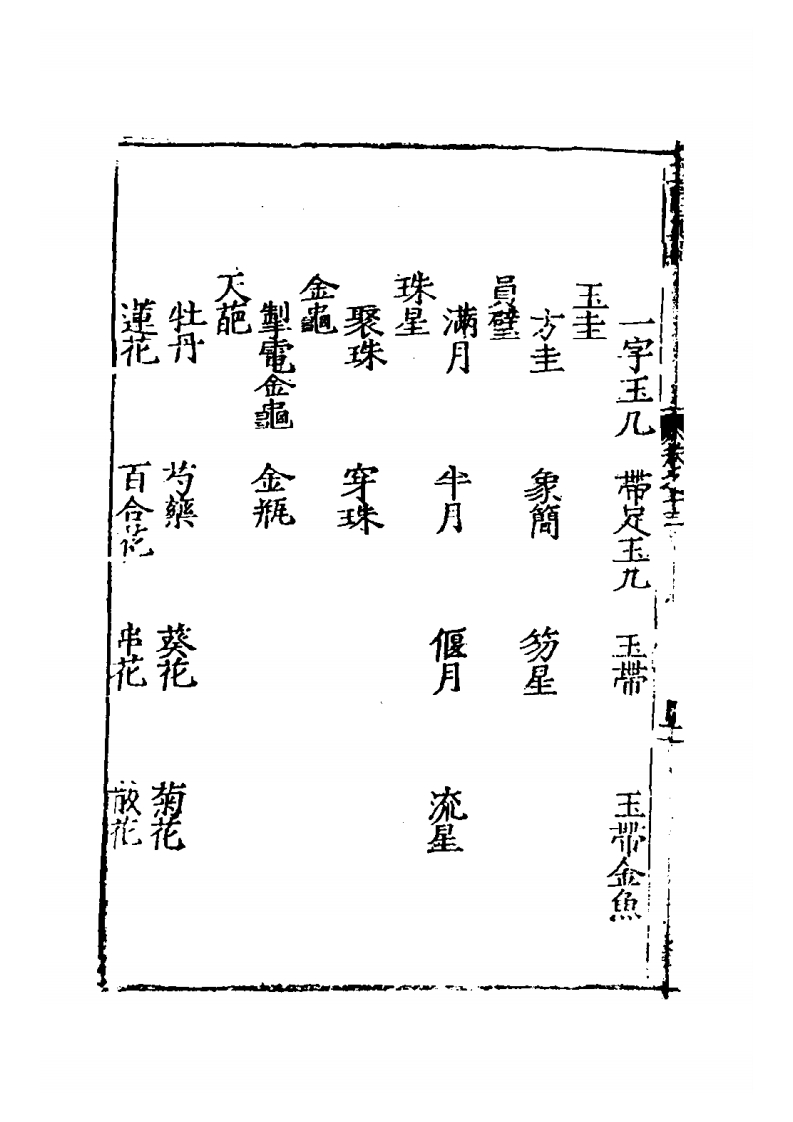 一字玉几　帶足玉几　玉帶　玉帶金魚
玉圭
方圭　象簡　笏星
員璧
滿月　半月　偃月　流星
珠星
聚珠　穿珠
金龜
掣電金龜　金瓶
天葩
牡丹　芍藥　葵花　菊花
蓮花　百合花　串花　散花